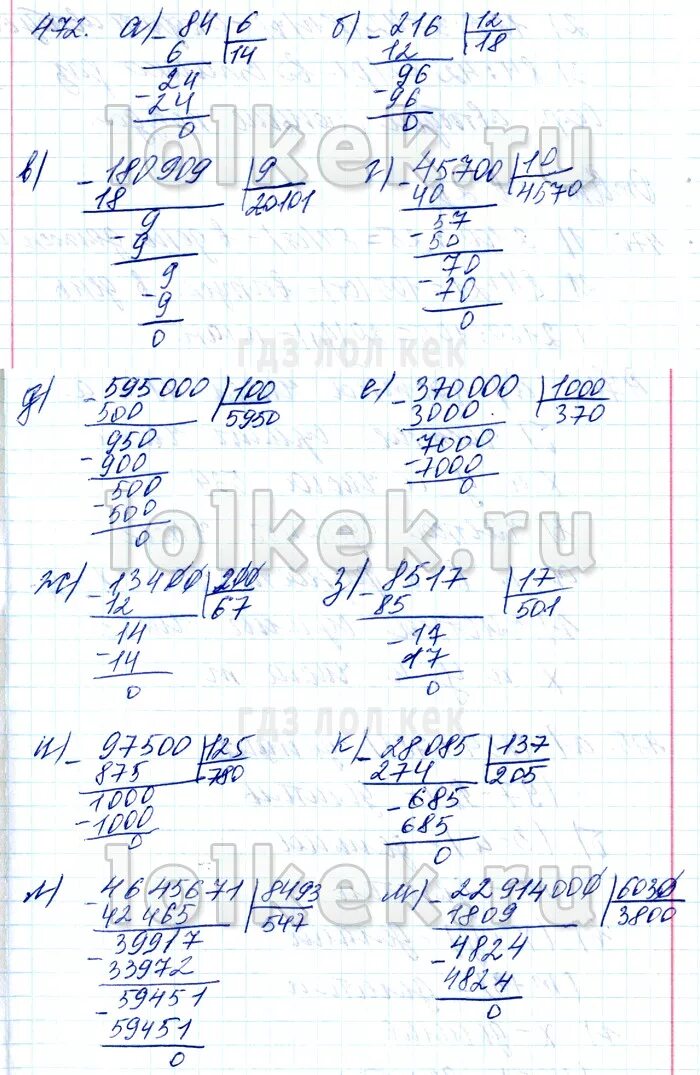 472. а) - 84 | 6   б) - 216 | 12
6   14   12   18
24   96
- 24   - 96
0   0
lolkek.ru
в) - 180909 | 9   г) - 45700 | 10
18   20101   40   4570
9   57
- 9   - 50
9   70
- 9   - 70
0   0
гдз лол кек
д) - 595000 | 100   е) - 370000 | 1000
500   5950   3000   370
950   7000
- 900   - 7000
500   0
- 500
0
lolkek.ru
ж) - 13400 | 200   з) - 8517 | 17
12   67   85   501
14   - 17
- 14   17
0   0
гдз лол кек
и) - 97500 | 125   к) - 28085 | 137
875   780   274   205
1000   - 685
- 1000   685
0   0
lolkek.ru
л) - 4645671 | 8493   м) - 22914000 | 6030
42465   547   1809   3800
39917   - 4824
- 33972   4824
59451   0
- 59451
0